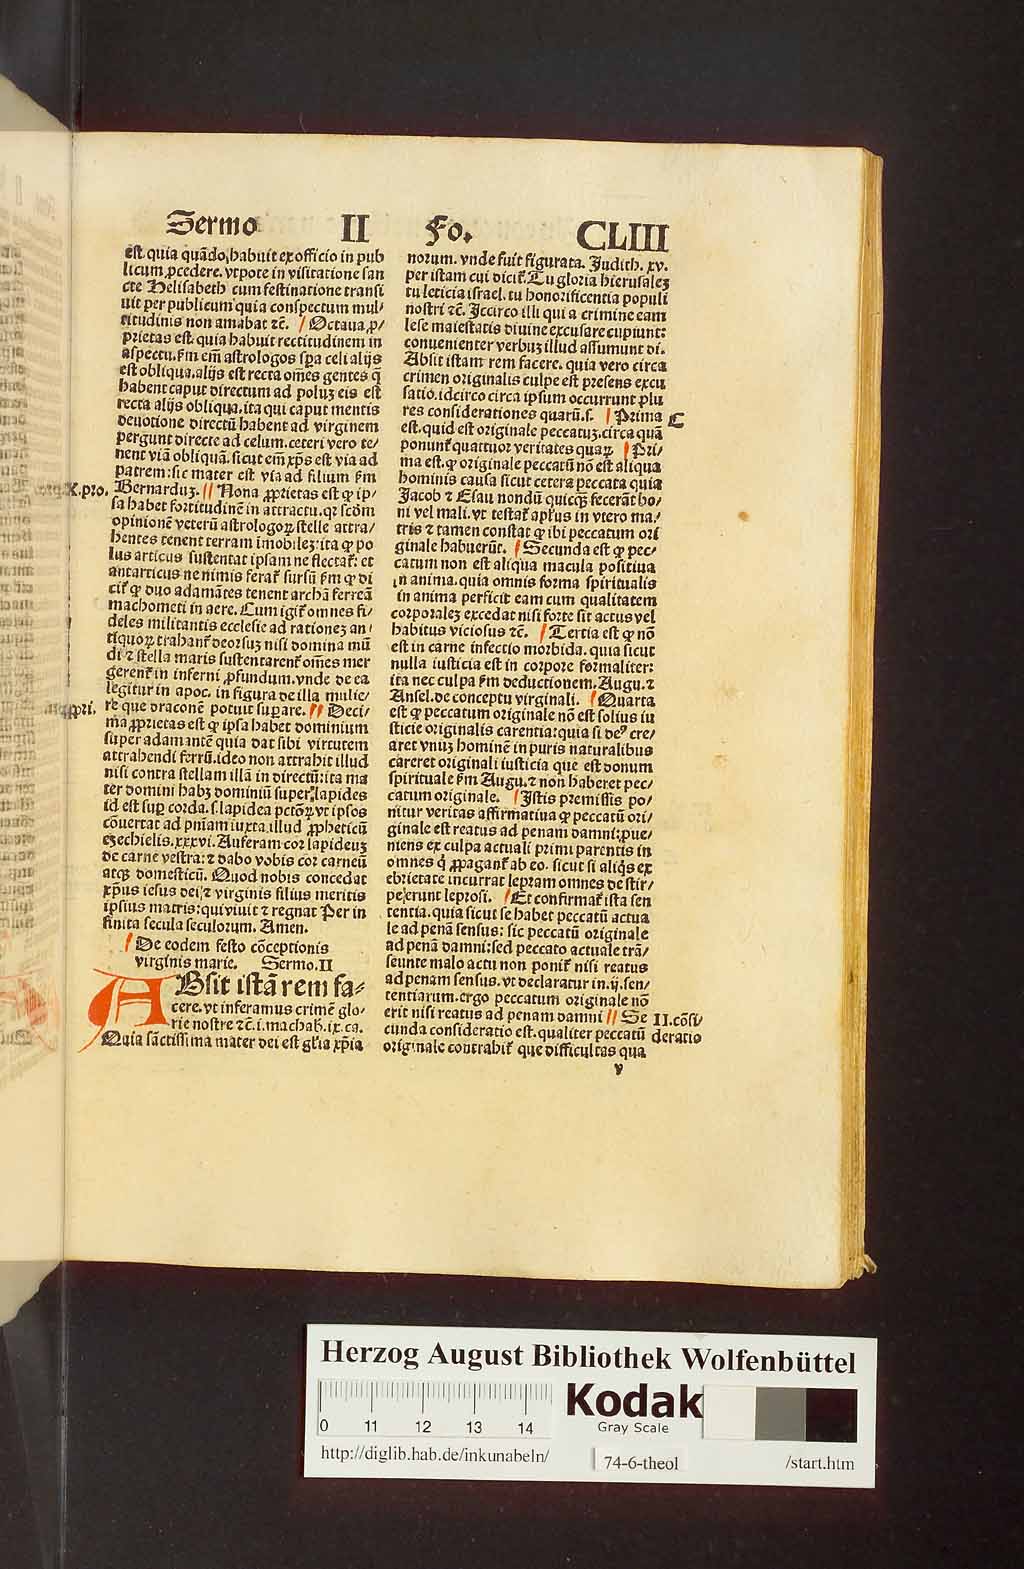 Sermo II Fo. CLIII
est. quia quãdo habuit ex officio in pub
licum ꝓcedere. vtpote in visitatione san
cte Helisabeth cum festinatione transi
uit per publicum quia conspectum mul/
titudinis non amabat ⁊c. Octaua ꝓ/
prietas est. quia habuit rectitudinem in
aspectu. ẜm em̃ astrologos sp̃a celi alijs
est obliqua. alijs est recta om̃es gentes q̃
habent caput directum ad poluȝ eis est
recta alijs obliqua. ita qui caput mentis
deuotione directũ habent ad virginem
pergunt directe ad celum. ceteri vero te/
nent viã obliquã. sicut em̃ xp̃s est via ad
patrem: sic mater est via ad filium ẜm
Bernarduȝ. Nona ꝓprietas est ꝙ ip/
sa habet fortitudinẽ in attractu. qꝛ scd̃m
opinionẽ veterũ astrologoꝝ stelle attra/
hentes tenent terram ĩmobileȝ: ita ꝙ po
lus articus sustentat ipsam ne flectat᷑: et
antarticus ne nimis ferat᷑ sursũ ẜm ꝙ di
cit᷑ ꝙ duo adamãtes tenent archã ferreã
machometi in aere. Cum igit᷑ omnes fi/
deles militantis ecclesie ad rationeȝ an/
tiquoꝝ trahant᷑ deorsuȝ nisi domina mũ
di ⁊ stella maris sustentarent᷑ om̃es mer
gerent᷑ in inferni ꝓfundum. vnde de ea
legitur in apoc. in figura de illa mulie/
re que draconẽ potuit suꝑare. Deci/
ma ꝓprietas est ꝙ ipsa habet dominium
super adamantẽ quia dat sibi virtutem
attrahendi ferrũ. ideo non attrahit illud
nisi contra stellam illã in directũ: ita ma
ter domini habȝ dominiũ super lapides
id est suꝑ corda. s. lapidea pctõꝝ vt ipsos
cõuertat ad pñiam iuxta illud ꝓpheticũ
eȝechielis. xxxvi. Auferam cor lapideuȝ
de carne vestra: ⁊ dabo vobis cor carneũ
atqȝ domesticũ. Quod nobis concedat
xp̃us iesus dei ⁊ virginis filius meritis
ipsius matris: qui viuit ⁊ regnat Per in
finita secula seculorum. Amen.
De eodem festo cõceptionis
virginis marie. Sermo. II
ABsit istã rem fa/
cere. vt inferamus crimẽ glo/
rie nostre ⁊c. i. machab̃. ix. ca.
Quia sãctissima mater dei est gl̃ia xp̃ia
norum. vnde fuit figurata. Judith. xv.
per istam cui dicit᷑. Tu gloria hierusaleȝ
tu leticia israel. tu honorificentia populi
nostri ⁊c. Jccirco illi qui a crimine eam
lese maiestatis diuine excusare cupiunt:
conuenienter verbuȝ illud assumunt di.
Absit istam rem facere. quia vero circa
crimen originalis culpe est presens excu
satio. idcirco circa ipsum occurrunt plu
res considerationes quarũ. s. Prima
est. quid est originale peccatuȝ. circa quã
ponunt᷑ quattuor veritates quaꝝ Pri/
ma est. ꝙ originale peccatũ nõ est aliqua
hominis causa sicut cetera peccata quia
Jacob ⁊ Esau nondũ quicqȝ fecerãt bo/
ni vel mali. vt testat᷑ ap̃lus in vtero ma/
tris ⁊ tamen constat ꝙ ibi peccatum ori
ginale habuerũt. Secunda est ꝙ pec/
catum non est aliqua macula positiua
in anima. quia omnis forma spiritualis
in anima perficit eam cum qualitatem
corporaleȝ excedat nisi forte sit actus vel
habitus viciosus ⁊c. Tertia est ꝙ nõ
est in carne infectio morbida. quia sicut
nulla iusticia est in corpore formaliter:
ita nec culpa ẜm deductionem. Augu. ⁊
Ansel. de conceptu virginali. Quarta
est ꝙ peccatum originale nõ est solius iu
sticie originalis carentia: quia si deꝰ cre/
aret vnuȝ hominẽ in puris naturalibus
careret originali iusticia que est donum
spirituale ẜm Augu. ⁊ non haberet pec/
catum originale. Jstis premissis po/
nitur veritas affirmatiua ꝙ peccatũ ori/
ginale est reatus ad penam damni: ꝓue/
niens ex culpa actuali primi parentis in
omnes q̃ ꝓpagant᷑ ab eo. sicut si aliq̃s ex
ebrietate incurrat lepram omnes de stir/
pe erunt leprosi. Et confirmat᷑ ista sen
tentia. quia sicut se habet peccatũ actua
le ad penã sensus: sic peccatũ originale
ad penã damni: sed peccato actuale trã/
seunte malo actu non ponit᷑ nisi reatus
ad penam sensus. vt declaratur in. ij. sen/
tentiarum. ergo peccatum originale nõ
erit nisi reatus ad penam damni Se
cunda consideratio est. qualiter peccatũ
originale contrahit᷑ que difficultas qua
C
X. pro.
pri.
II. cõsi/
deratio
v
Herzog August Bibliothek Wolfenbüttel
Kodak
Gray Scale
0 11 12 13 14
http://diglib.hab.de/inkunabeln/ 74-6-theol /start.htm